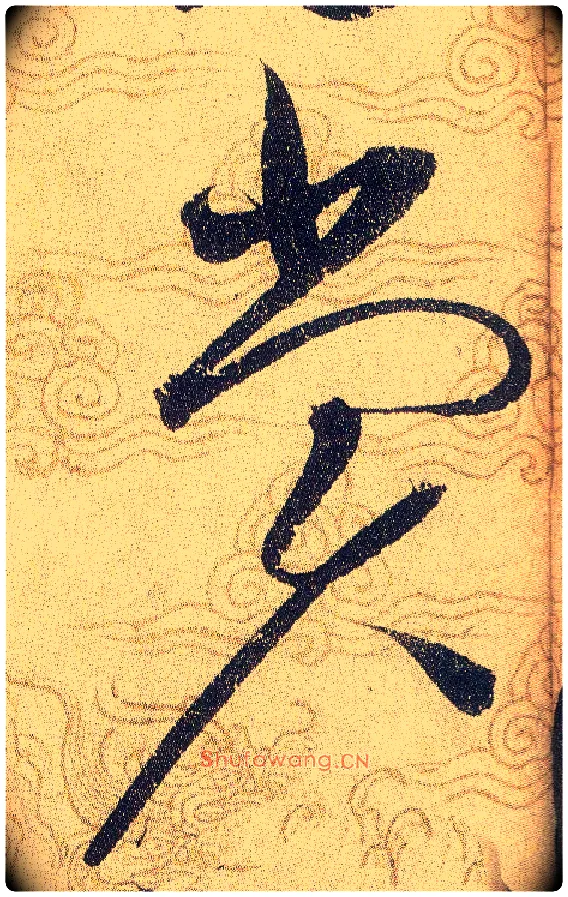 賞
Shufawang.CN